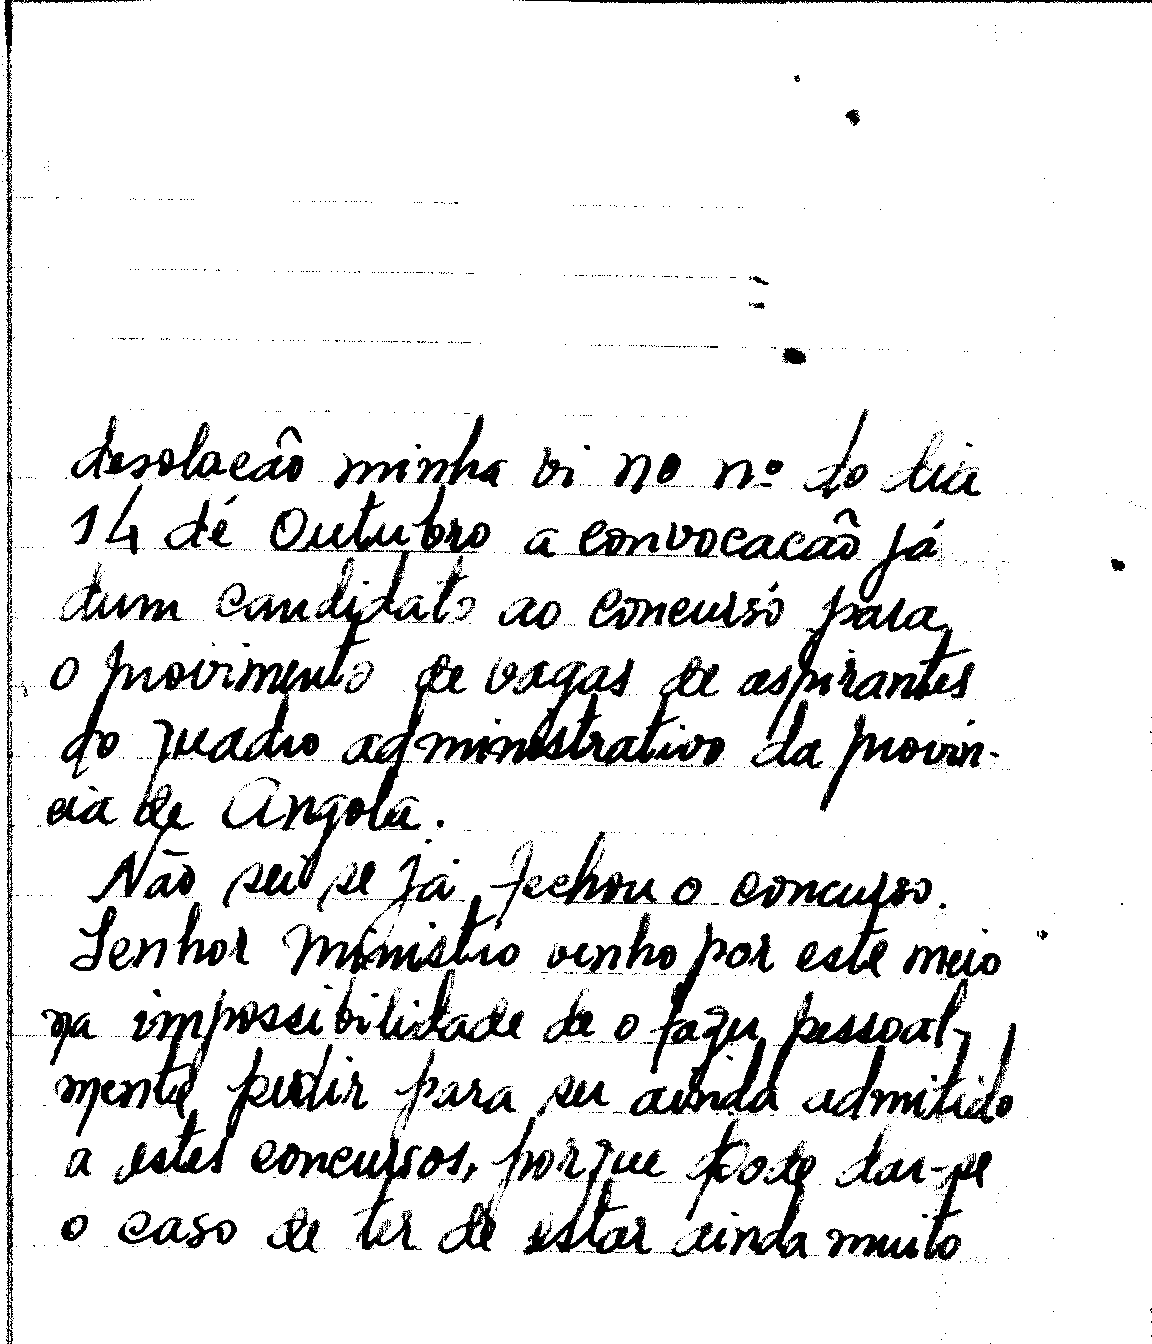 desolacâo minha vi no nº do dia
14 dé Outubro a convocacâo já
dum candidato ao concurso para
o provimento de vagas de aspirantes
do quadro administrativo da provín-
cia de Angola.
Não sei se já fechou o concurso.
Senhor Ministro venho por este meio
na impossibilidade de o fazer pessoal-
mente pedir para ser ainda admitido
a estes concursos, porque pode dar-se
o caso de ter de estar ainda muito